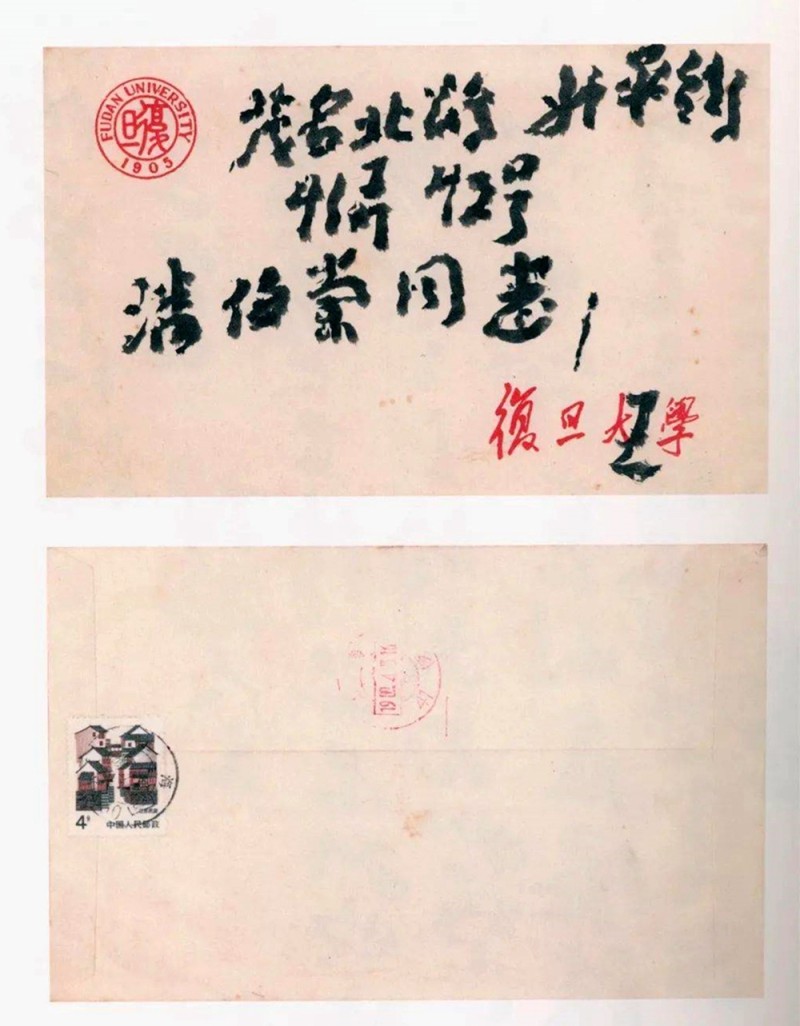 FUDAN UNIVERSITY
復旦
1905
茂名北路 升平街
弄 42号
潘伯 同志
復旦大學
海
中国人民邮政